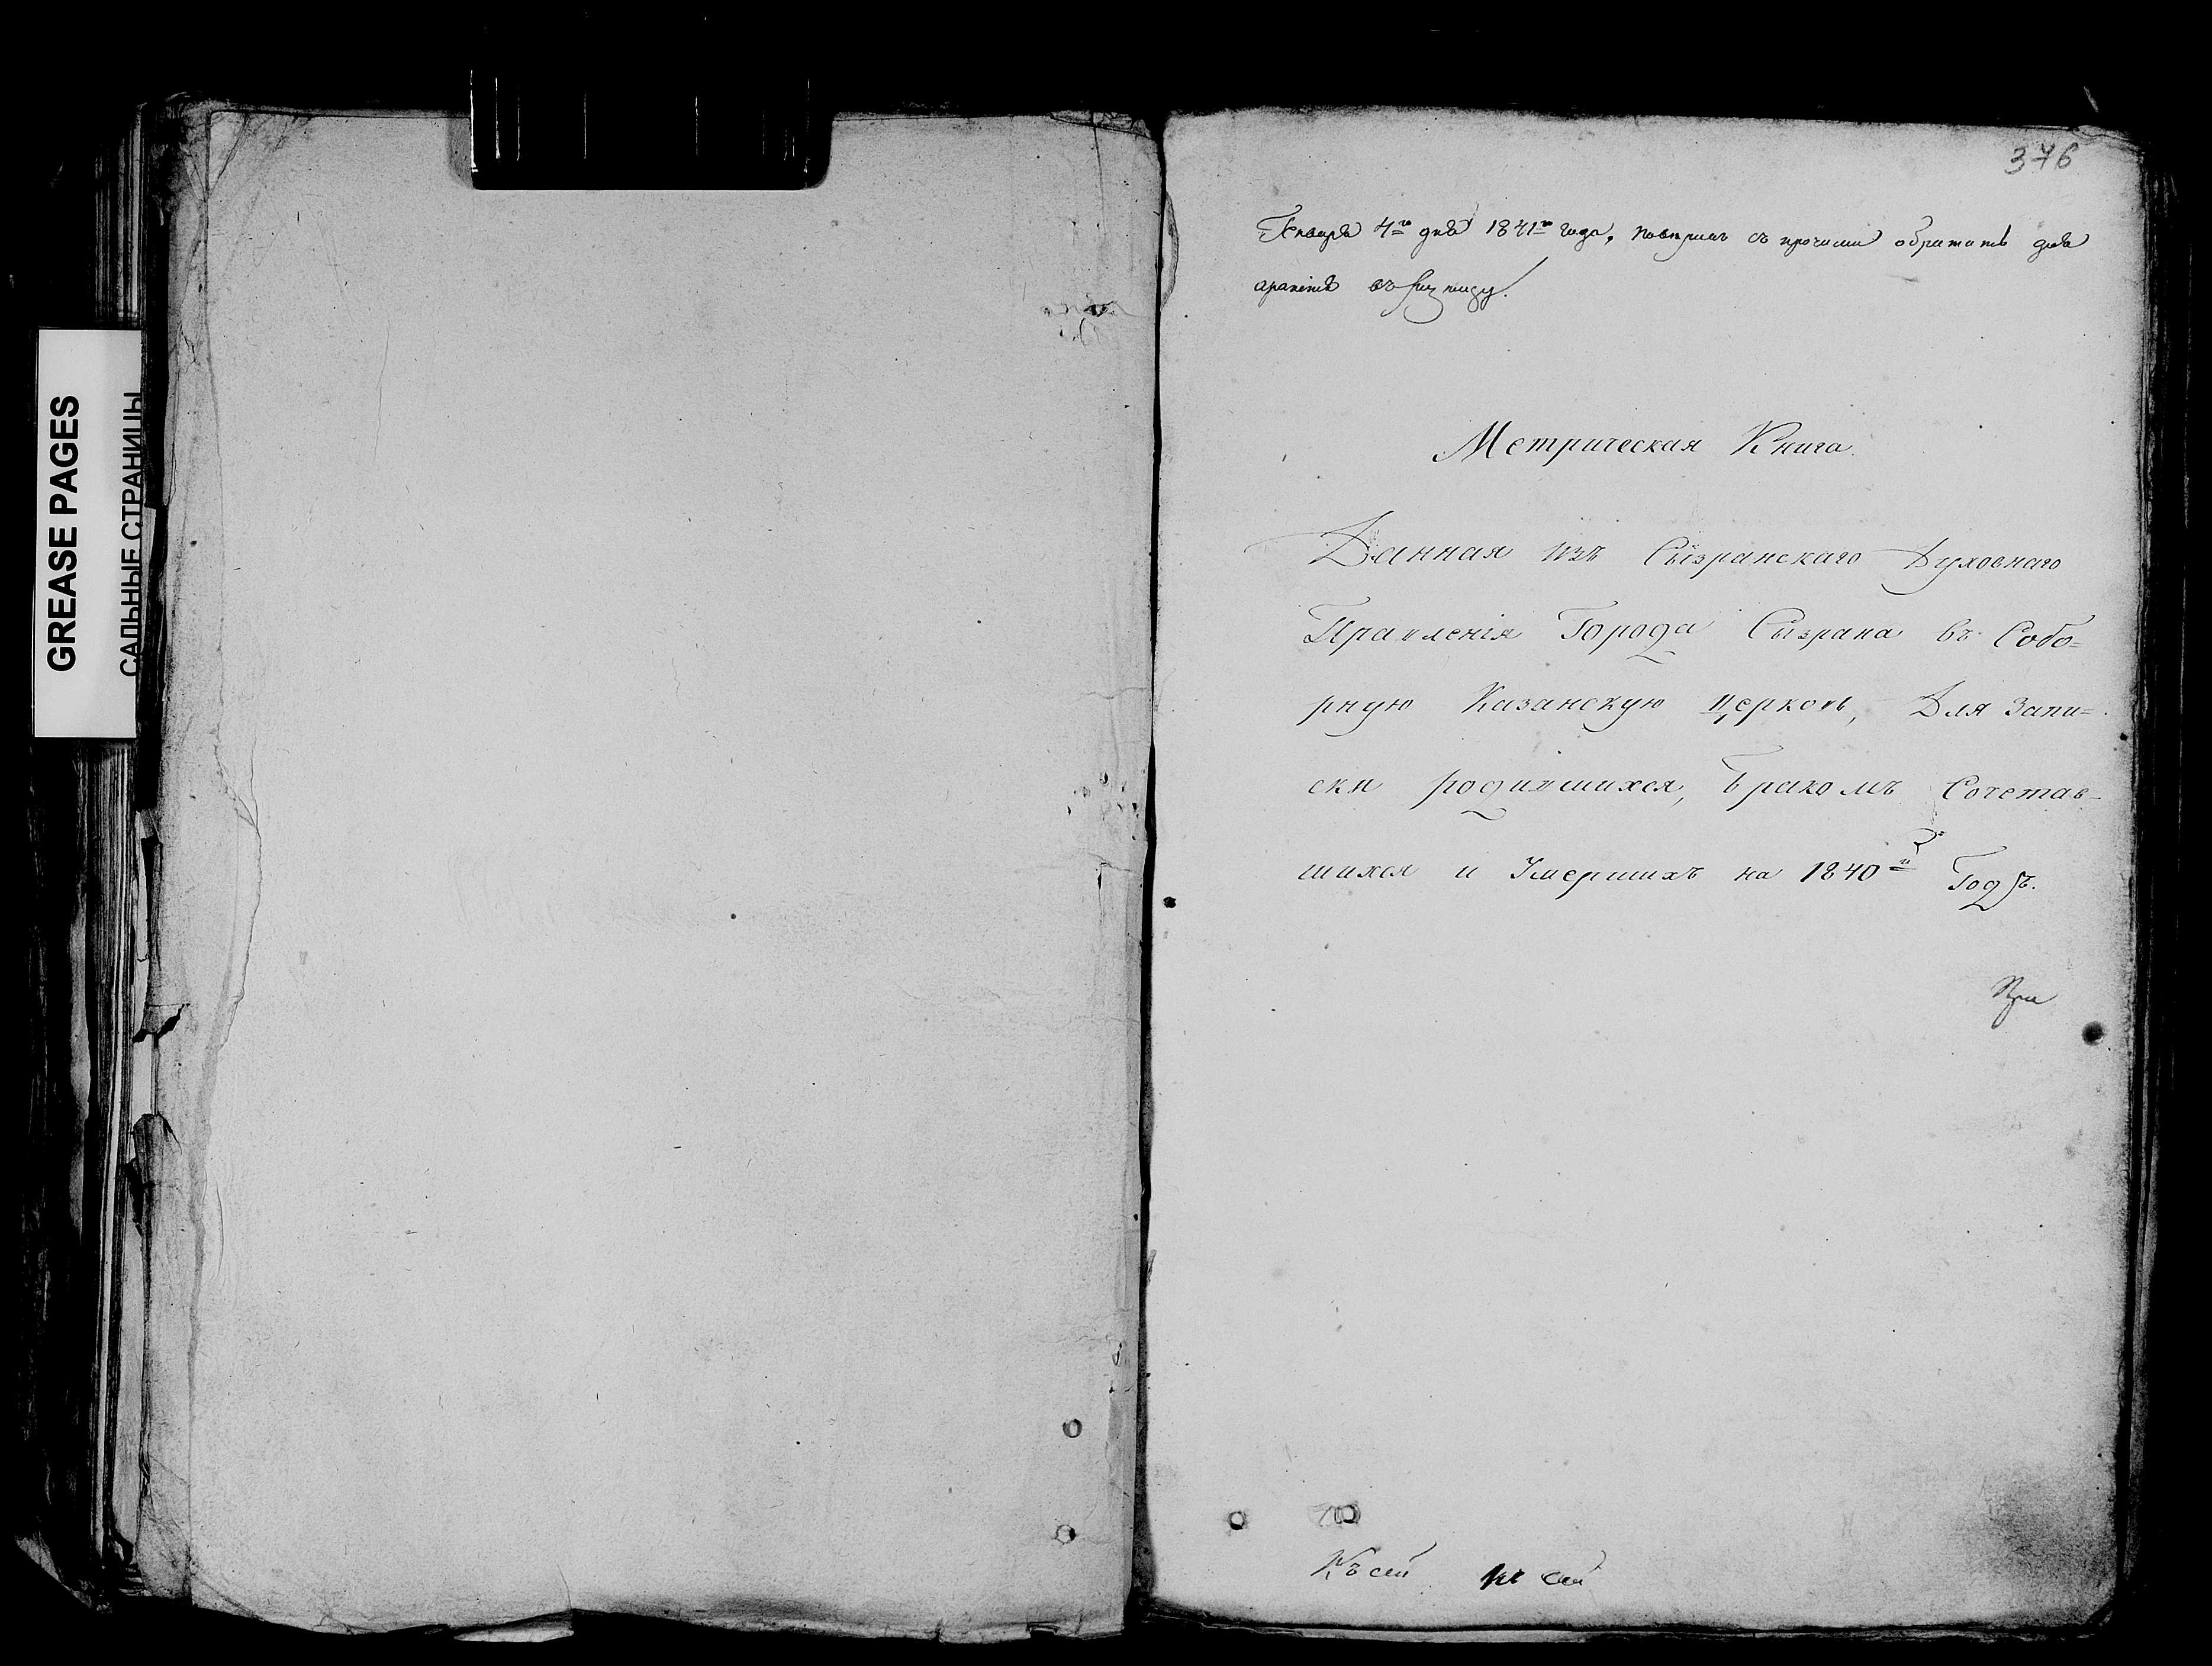 GREASE PAGES
САЛЬНЫЕ СТРАНИЦЫ
376
Генваря 4го дня 1841го года, съ прочими обратить для
хранения въ ризницу.
Метрическая Книга.
Данная изъ Сызранскаго Духовнаго
Правленія Города Сызрана въ Собо=
рную Казанскую Церковь, Для Запи=
ски родившихся, Бракомъ Сочетав=
шихся и Умершихъ на 1840й Годъ.
При
Къ сей къ сей